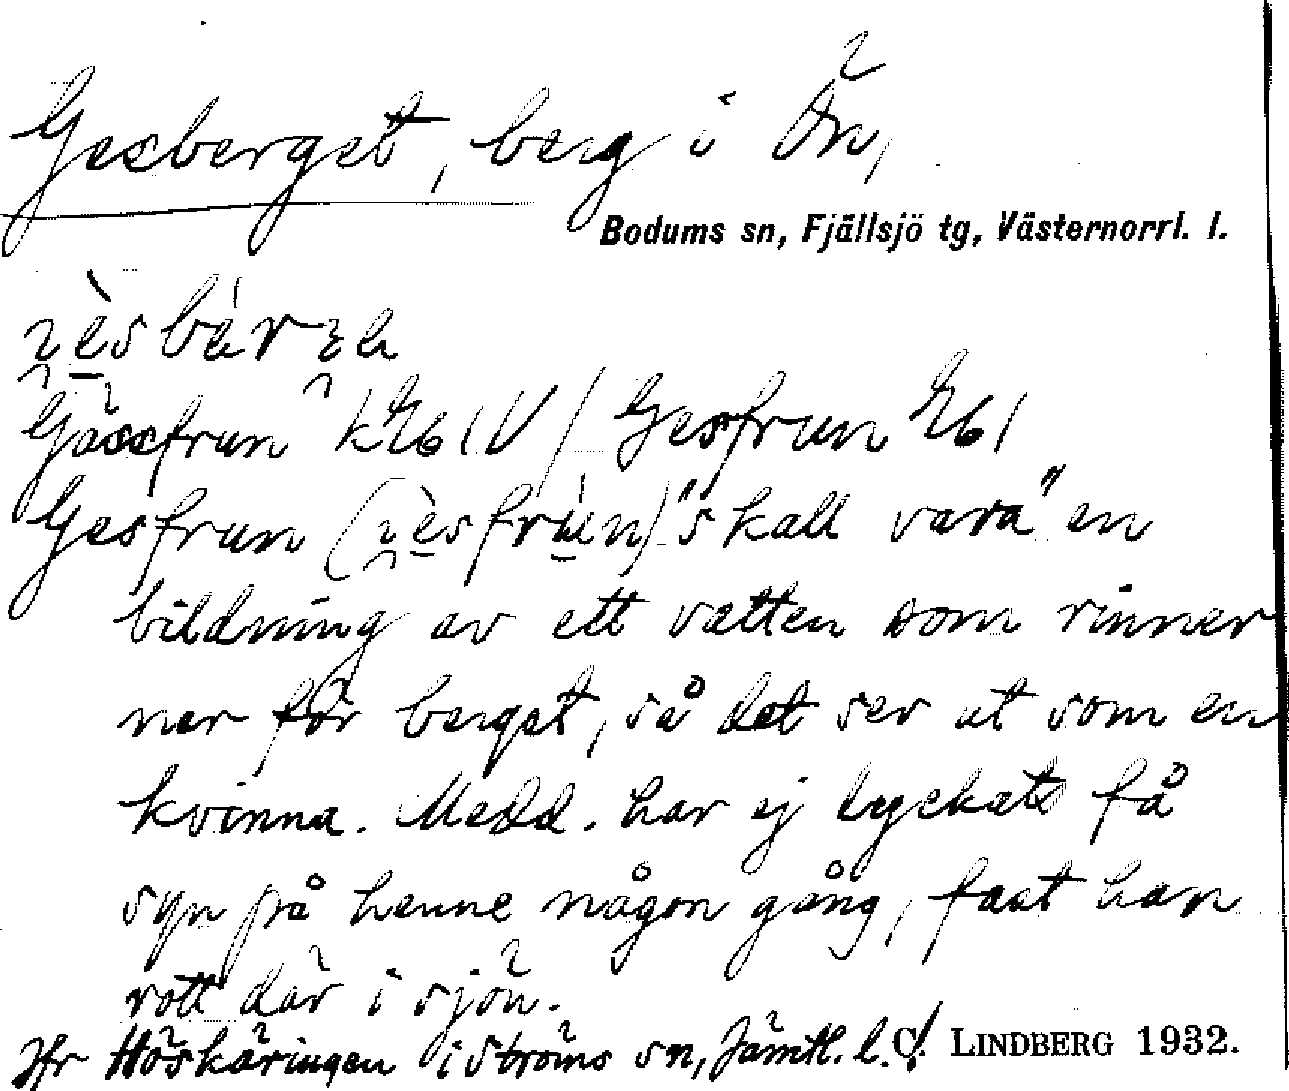 Gesberget, berg i Ön,
Bodums sn, Fjällsjö tg, Västernorrl. l.
Gässfrun / Gesfrun
Gesfrun "skall vara" en
bildning av ett vatten som rinner
ner för berget, så det ser ut som en
kvinna. Medd. har ej lyckats få
syn på henne någon gång, fast han
rott där i sjön.
Jfr Höskäringen i Ströms sn, Jämtl. l.!
C. LINDBERG 1932.